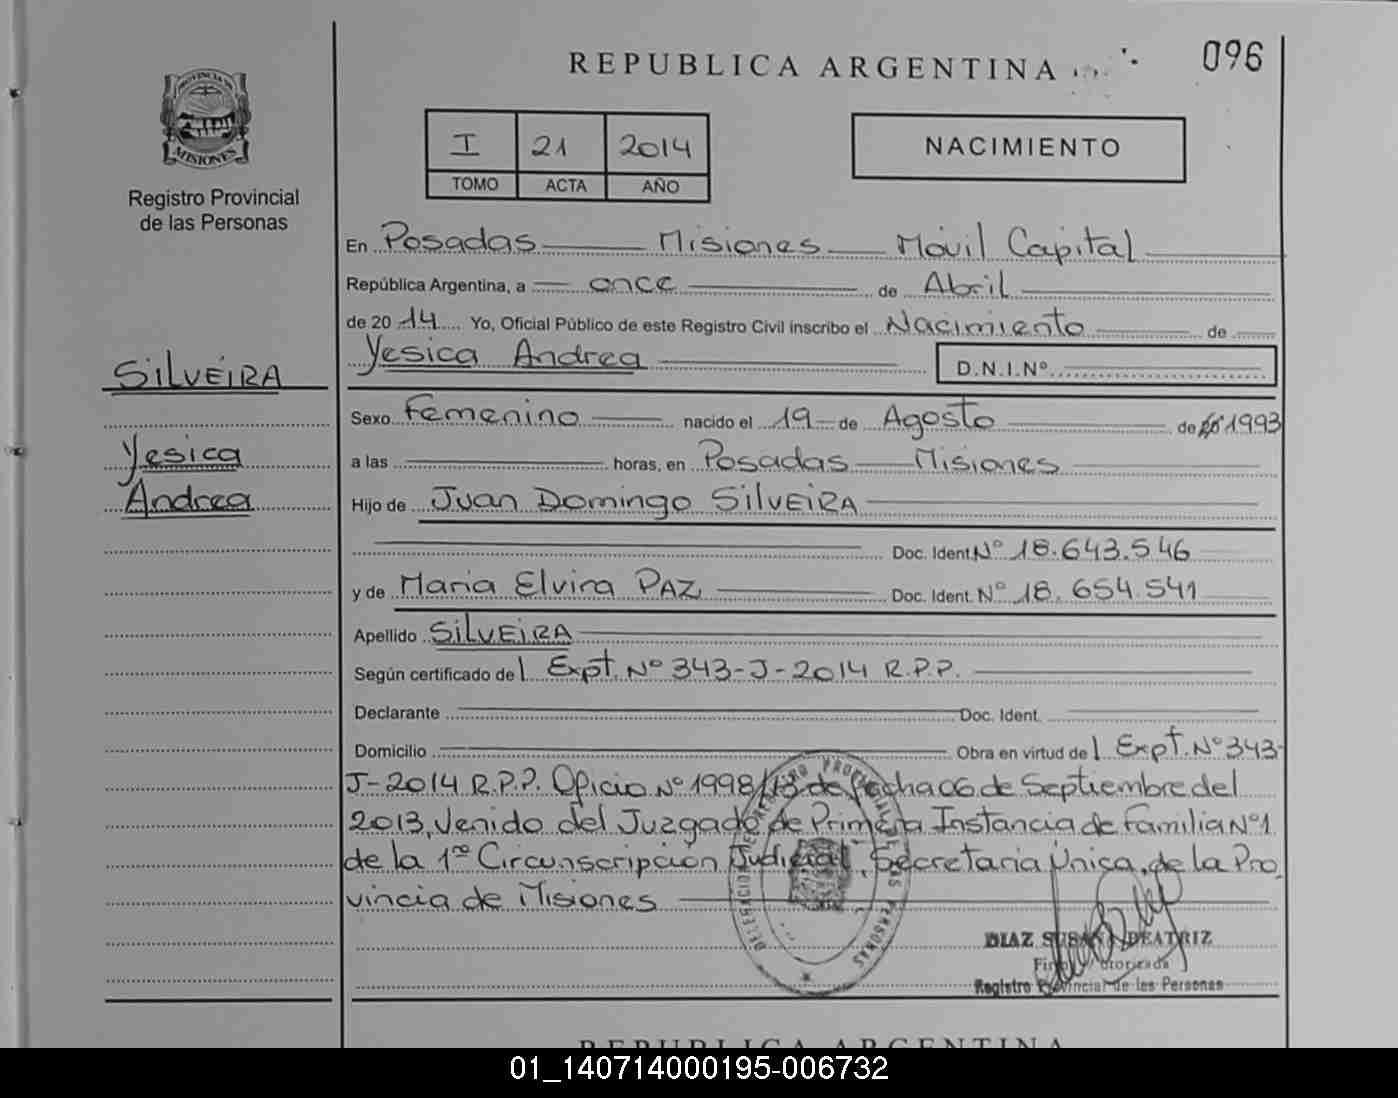 REPUBLICA ARGENTINA
096
PROVINCIA DE
MISIONES
Registro Provincial
de las Personas
I 21 2014
TOMO ACTA AÑO
NACIMIENTO
En Posadas Misiones Móvil Capital
República Argentina, a once de Abril
de 2014 Yo, Oficial Público de este Registro Civil inscribo el Nacimiento de
Yesica Andrea D.N.I.Nº
SILVEIRA
Yesica
Andrea
Sexo Femenino nacido el 19 de Agosto de 1993
a las horas, en Posadas Misiones
Hijo de Juan Domingo SILVEIRA
Doc. Ident. Nº 18.643.546
y de Maria Elvira PAZ Doc. Ident. Nº 18.654.541
Apellido SILVEIRA
Según certificado del Expt. Nº 343-J-2014 R.P.P.
Declarante Doc. Ident.
Domicilio Obra en virtud del Expt. Nº 343-
J-2014 R.P.P. Oficio Nº 1998/13 de fecha 06 de Septiembre del
2013, Venido del Juzgado de Primera Instancia de Familia Nº1
de la 1ra Circunscripción Judicial, Secretaria Única, de la Pro
vincia de Misiones
DELEGACION DEL REGISTRO PROVINCIAL DE LAS PERSONAS
DIAZ SUSANA BEATRIZ
Firma Autorizada
Registro Provincial de las Personas
REPUBLICA ARGENTINA
01_140714000195-006732